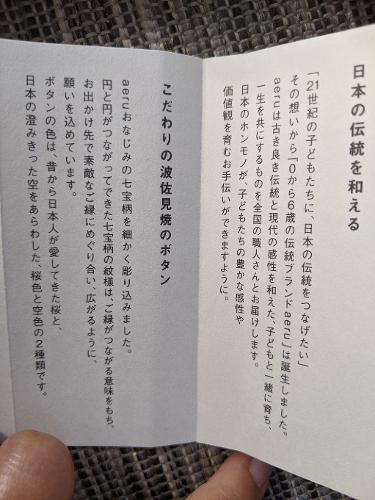 日本の伝統を和える
「21世紀の子どもたちに、日本の伝統をつなげたい」
その想いから『0から6歳の伝統ブランドaeru』は誕生しました。
aeruは古き良き伝統と現代の感性を和えた、子どもと一緒に育ち、
一生を共にするものを全国の職人さんとお届けします。
日本のホンモノが、子どもたちの豊かな感性や
価値観を育むお手伝いができますように。
こだわりの波佐見焼のボタン
aeruおなじみの七宝柄を細かく彫り込みました。
円と円がつながってできた七宝柄の紋様は、ご縁がつながる意味をもち、
お出かけ先で素敵なご縁にめぐり合い、広がるように、
願いを込めています。
ボタンの色は、昔から日本人が愛してきた桜と、
日本の澄みきった空をあらわした、桜色と空色の2種類です。